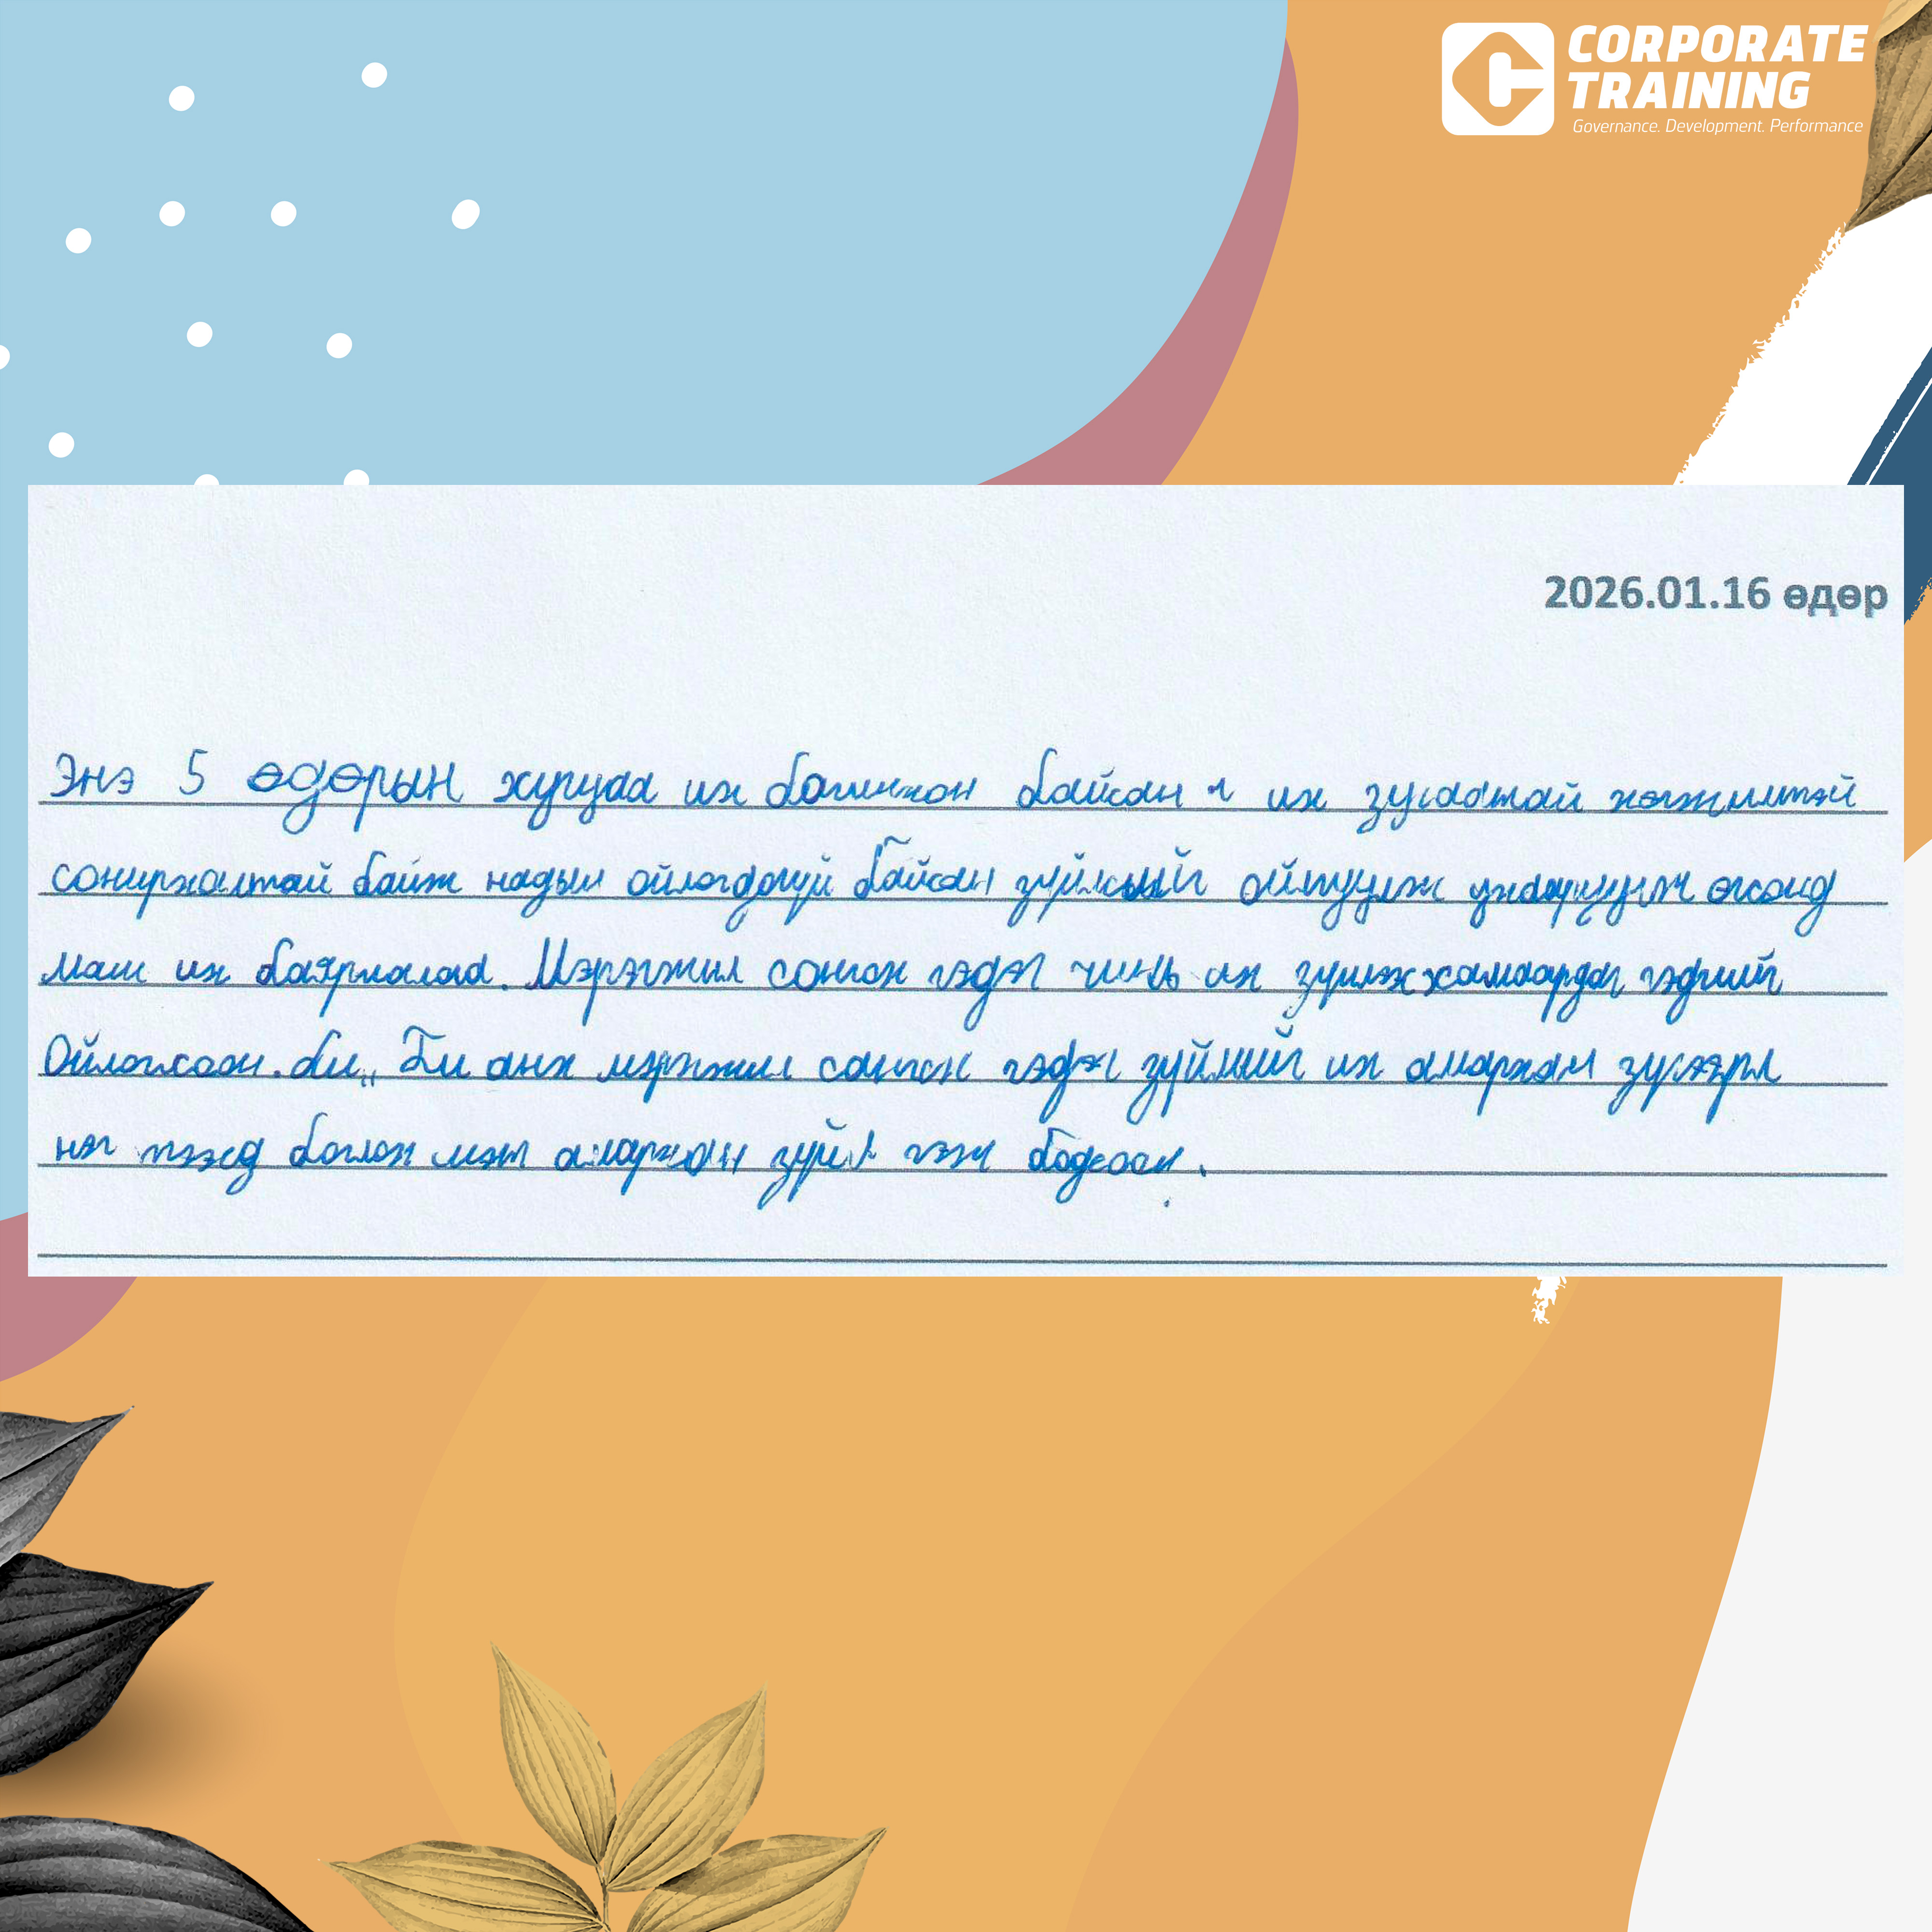 CORPORATE
TRAINING
Governance. Development. Performance
2026.01.16 өдөр
Энэ 5 өдөрын хугцаа их богинохон байсан ч их зугаатай хөгжилтэй
сонирхолтой байж надын ойлогдогүй байсан зүйлсийг ойлгуулж ухааруулж өгсөнд
маш их баярлалаа. Мэрэгжил сонгох гэдэг чинь их зүйлээс хамаардаг гэдгийг
Ойлголсоон. би,, Би анх мэргэжил сонгох гэдэг зүйлийг их амархан зүгээрл
нэг тээсд боглох мэт амархан зүйл гэж бодсоон.